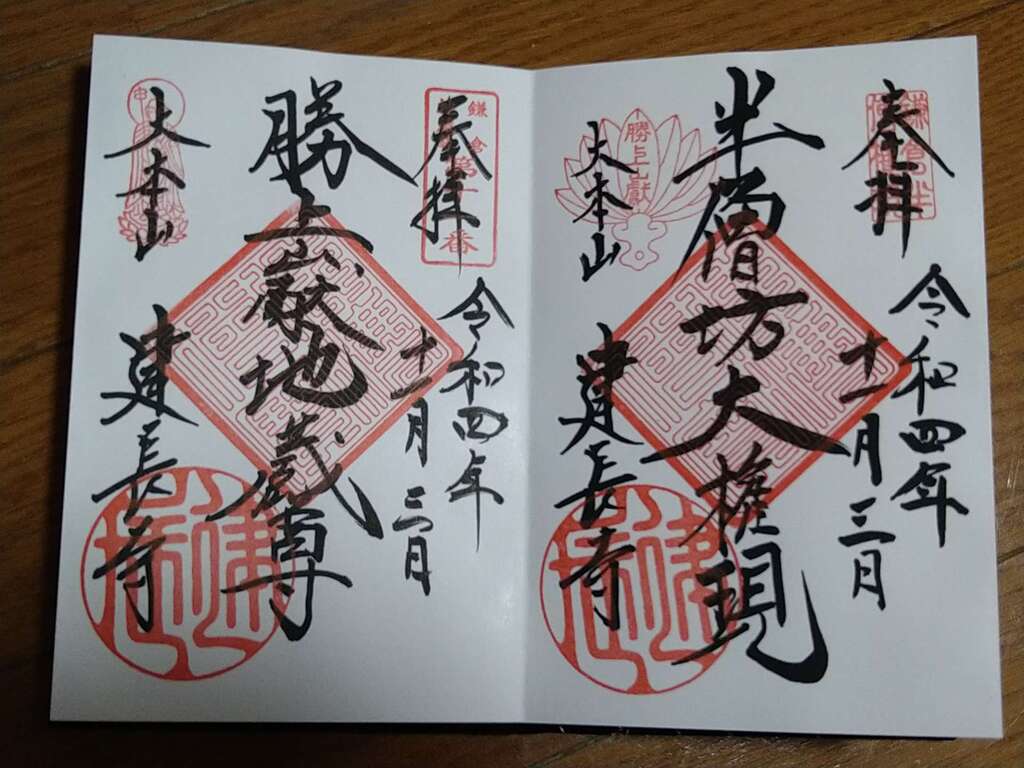 奉拝
令和四年
十一月三日
半僧坊大権現
勝上嶽
大本山
建長寺
鎌倉第十番
奉拝
令和四年
十一月三日
勝上嶽地蔵尊
大本山
建長寺